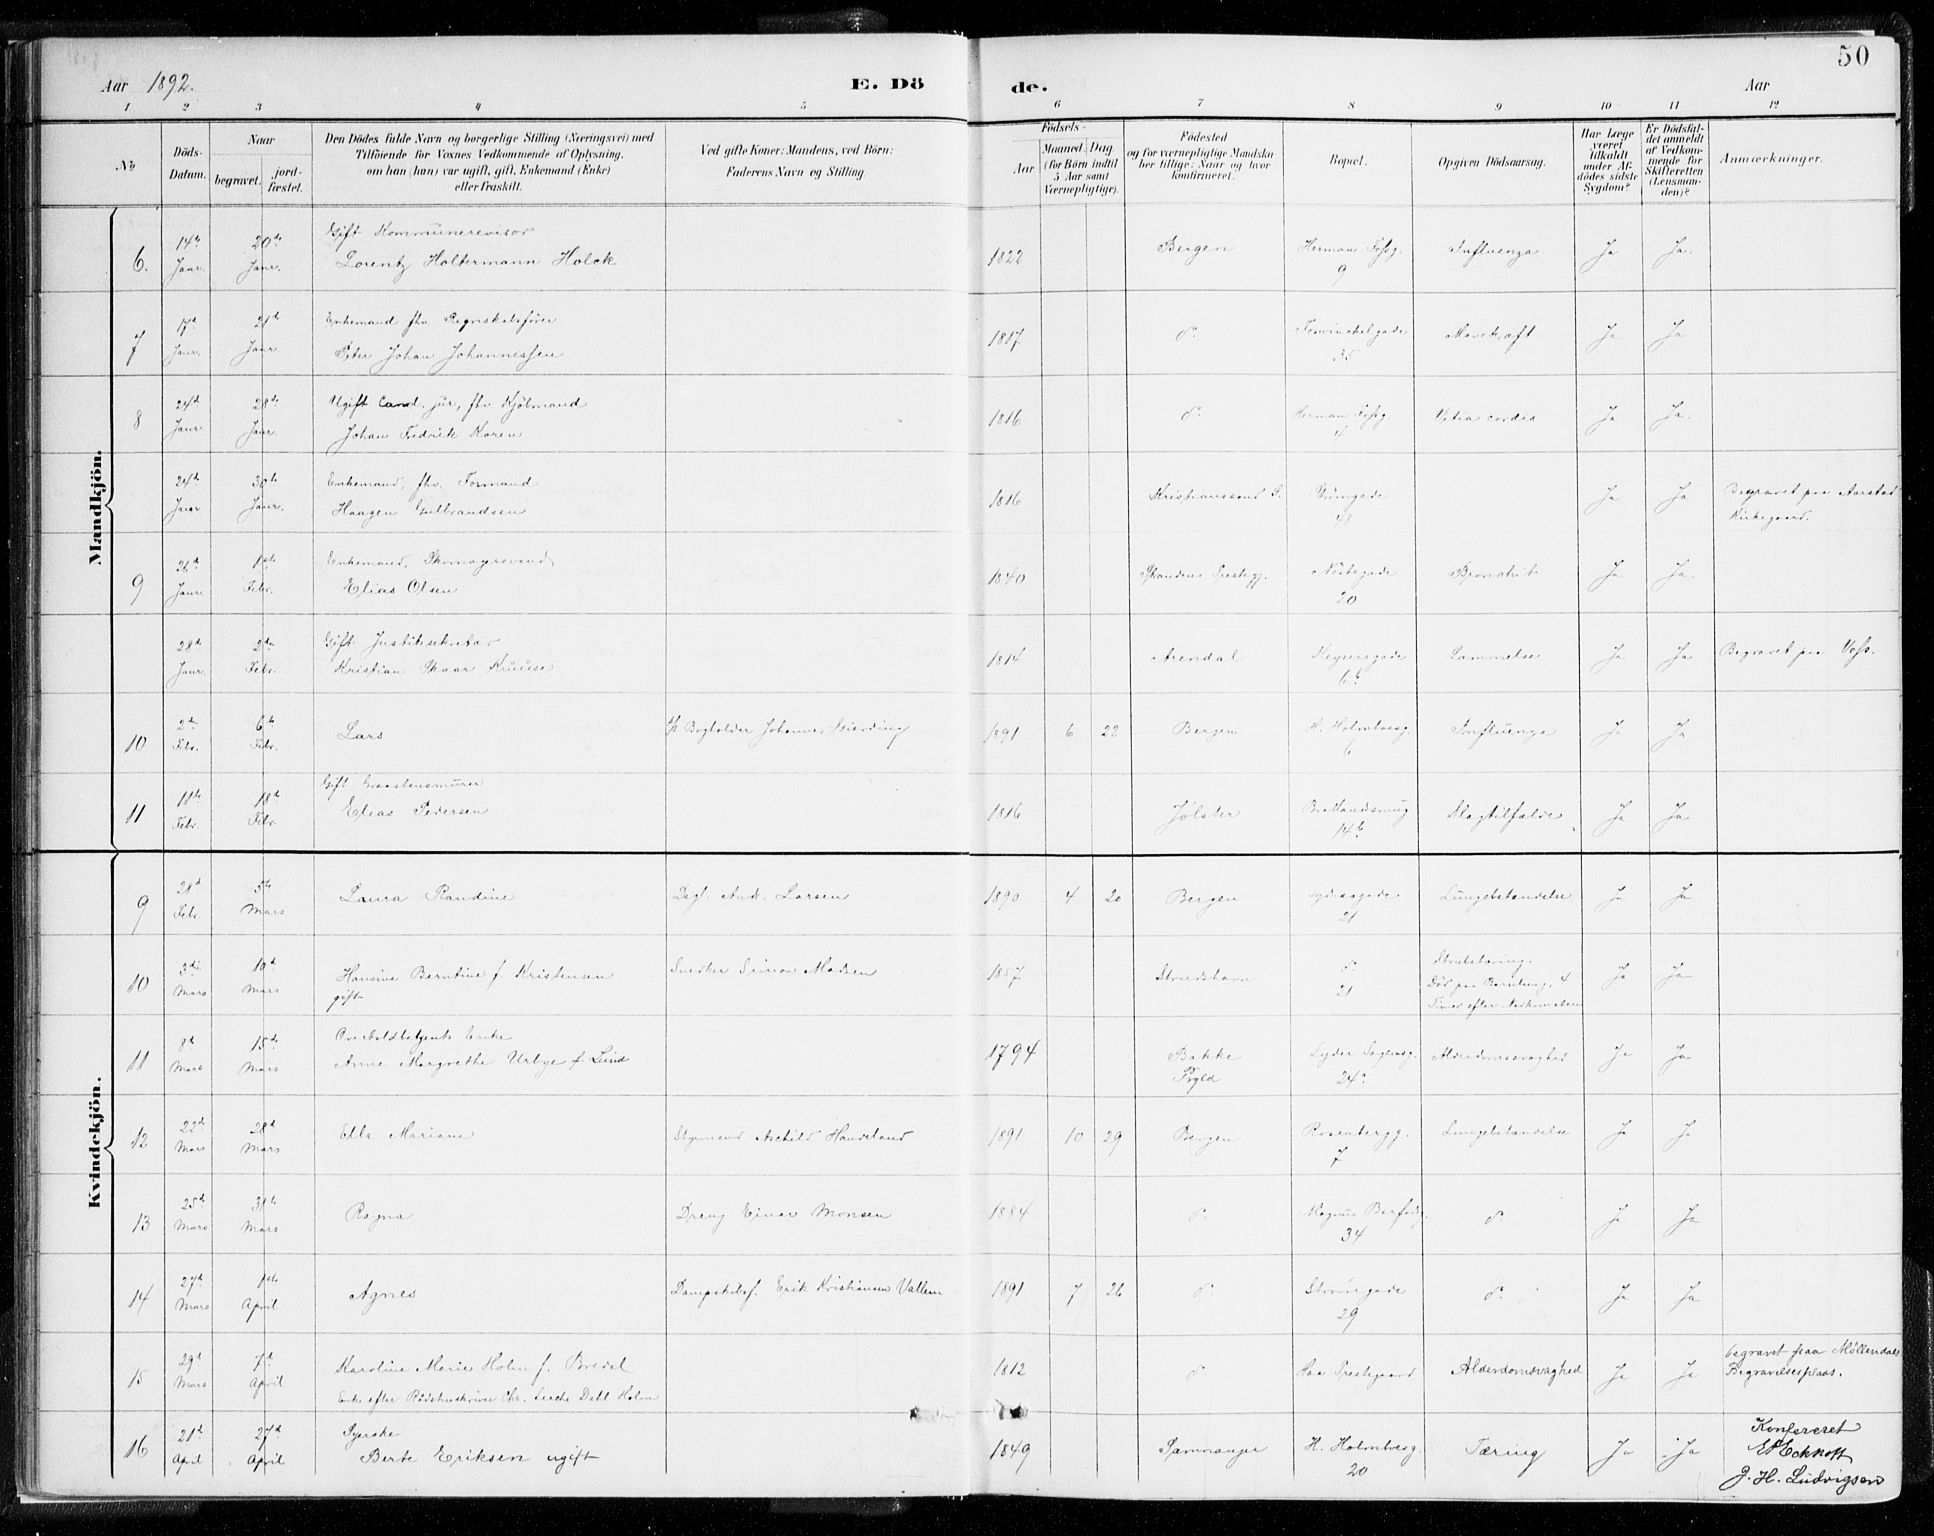 50
Aar 1892.
E. Dö
de.
Aar
1 2 3 4 5 6 7 8 9 10 11 12
No
Döds-Datum.
Naar
begravet.
jord-fæstet.
Den Dödes fulde Navn og borgerlige Stilling (Næringsvei) med
Tilföiende for Voxnes Vedkommende af Oplysning,
om han (hun) var ugift, gift, Enkemand (Enke)
eller fraskilt.
Ved gifte Koner: Mandens, ved Börn:
Faderens Navn og Stilling.
Födsels-
Aar
Maaned. Dag.
(for Börn indtil
5 Aar samt
Værnepligtige).
Födested
og for værnepligtige Mandska-
ber tillige: Naar og hvor
konfirmeret.
Bopæl.
Opgiven Dödsaarsag.
Har Læge
været
tilkaldt
under Af-
dödes sidste
Sygdom?
Er Dödsfal-
det anmeldt
af Vedkom-
mende for
Skifteretten
(Lensman-
den)?
Anmærkninger.
Mandkjön.
6. 14de Janr. 20de Janr. Gift Kommünerevisor
Lorentz Holtermann Holck 1822 Bergen Herman Fossg. 9 Influenza Ja Ja.
7 17d Janr. 21d Janr Enkemand fhv. Regnskabsfører
Peter Johan Johannessen 1817 do 35 Mavekræft Ja Ja
8 24d Janr. 28de Janr. Ugift Cand. jür, fhv. Kjöbmand
Johan Fredrik Koren 1816 do Herman Fossg. 4 Vitia cordis Ja Ja.
24d Janr 30te Janr. Enkemand, fhv. Formand
Haagen Gulbrandsen 1816 Kristianssund S. 48 Ja Ja Begravet paa Aarstad
Kirkegaard.
9 26d Janr. 1ste Febr. Enkemand, Skomagersvend
Elias Olsen 1840 Strandens Prestegj. Nöstegade 20 Bronchit Ja Ja.
28d Janr. 2den Febr. Gift Justitssekretær
Kristian Skaar Kruuse 1814 Arendal 6b Lammelse Ja Ja Begravet paa Voss.
10 2den Febr. 6te Febr. Lars Bogholder Johannes 1891 6 22 Bergen H. Holmboesg. 6 Influenza Ja Ja
11 11te Febr. 18d Febr. Gift Graastensmürer
Elias Pedersen 1816 Jölster 14b Slagtilfælde Ja Ja
Kvindekjön.
9 28d Febr 5te Mars Laura Randine Dagl. And. Larsen 1890 4 20 Bergen Sydnesgade 21 Lungebetændelse Ja Ja
10 3die Mars 10d Mars Hansine Berntine f. Kristensen
gift Snedker Simon Madsen 1857 do 21 Strubetæring.
Död paa Barselseng, 4
Timer efter Nedkomsten Ja Ja
11 8d Mars 15d Mars Overtoldbetjents Enke
Anne Margrethe Urbye f. Lund 1794 Bakke
Fogld Lyder Sagensg. 24a Alderdomssvaghed Ja Ja
12 22d Mars 28d Mars Ella Mariane Styrmand Askild Haudeland 1891 10 29 Bergen Rosenbergg. 7 Lungebetændelse Ja Ja
13 25d Mars 31te Mars Ragna Dreng Einar Monsen 1884 do Magnus Barfodg. 34 do Ja Ja
14 27d Mars 1ste April Agnes Dampskibsf. Erik Kristiansen Vallem 1891 7 26 do Strömgade 29 do Ja Ja
15 29d Mars 7d April Karoline Marie Holm f. Bredel
Enke efter Rådstueskriver Chr. Lerche Dahl Holm 1812 do Alderdomsvaghed Ja Ja begravet paa Møllendals
Begravelsesplads.
16 21d April 27d April Syerske
Berte Eriksen ugift 1849 Sammanger H. Holmboesg. 20 Tæring Ja Ja Konfereret
Eckhoff
J. H. Ludvigsen